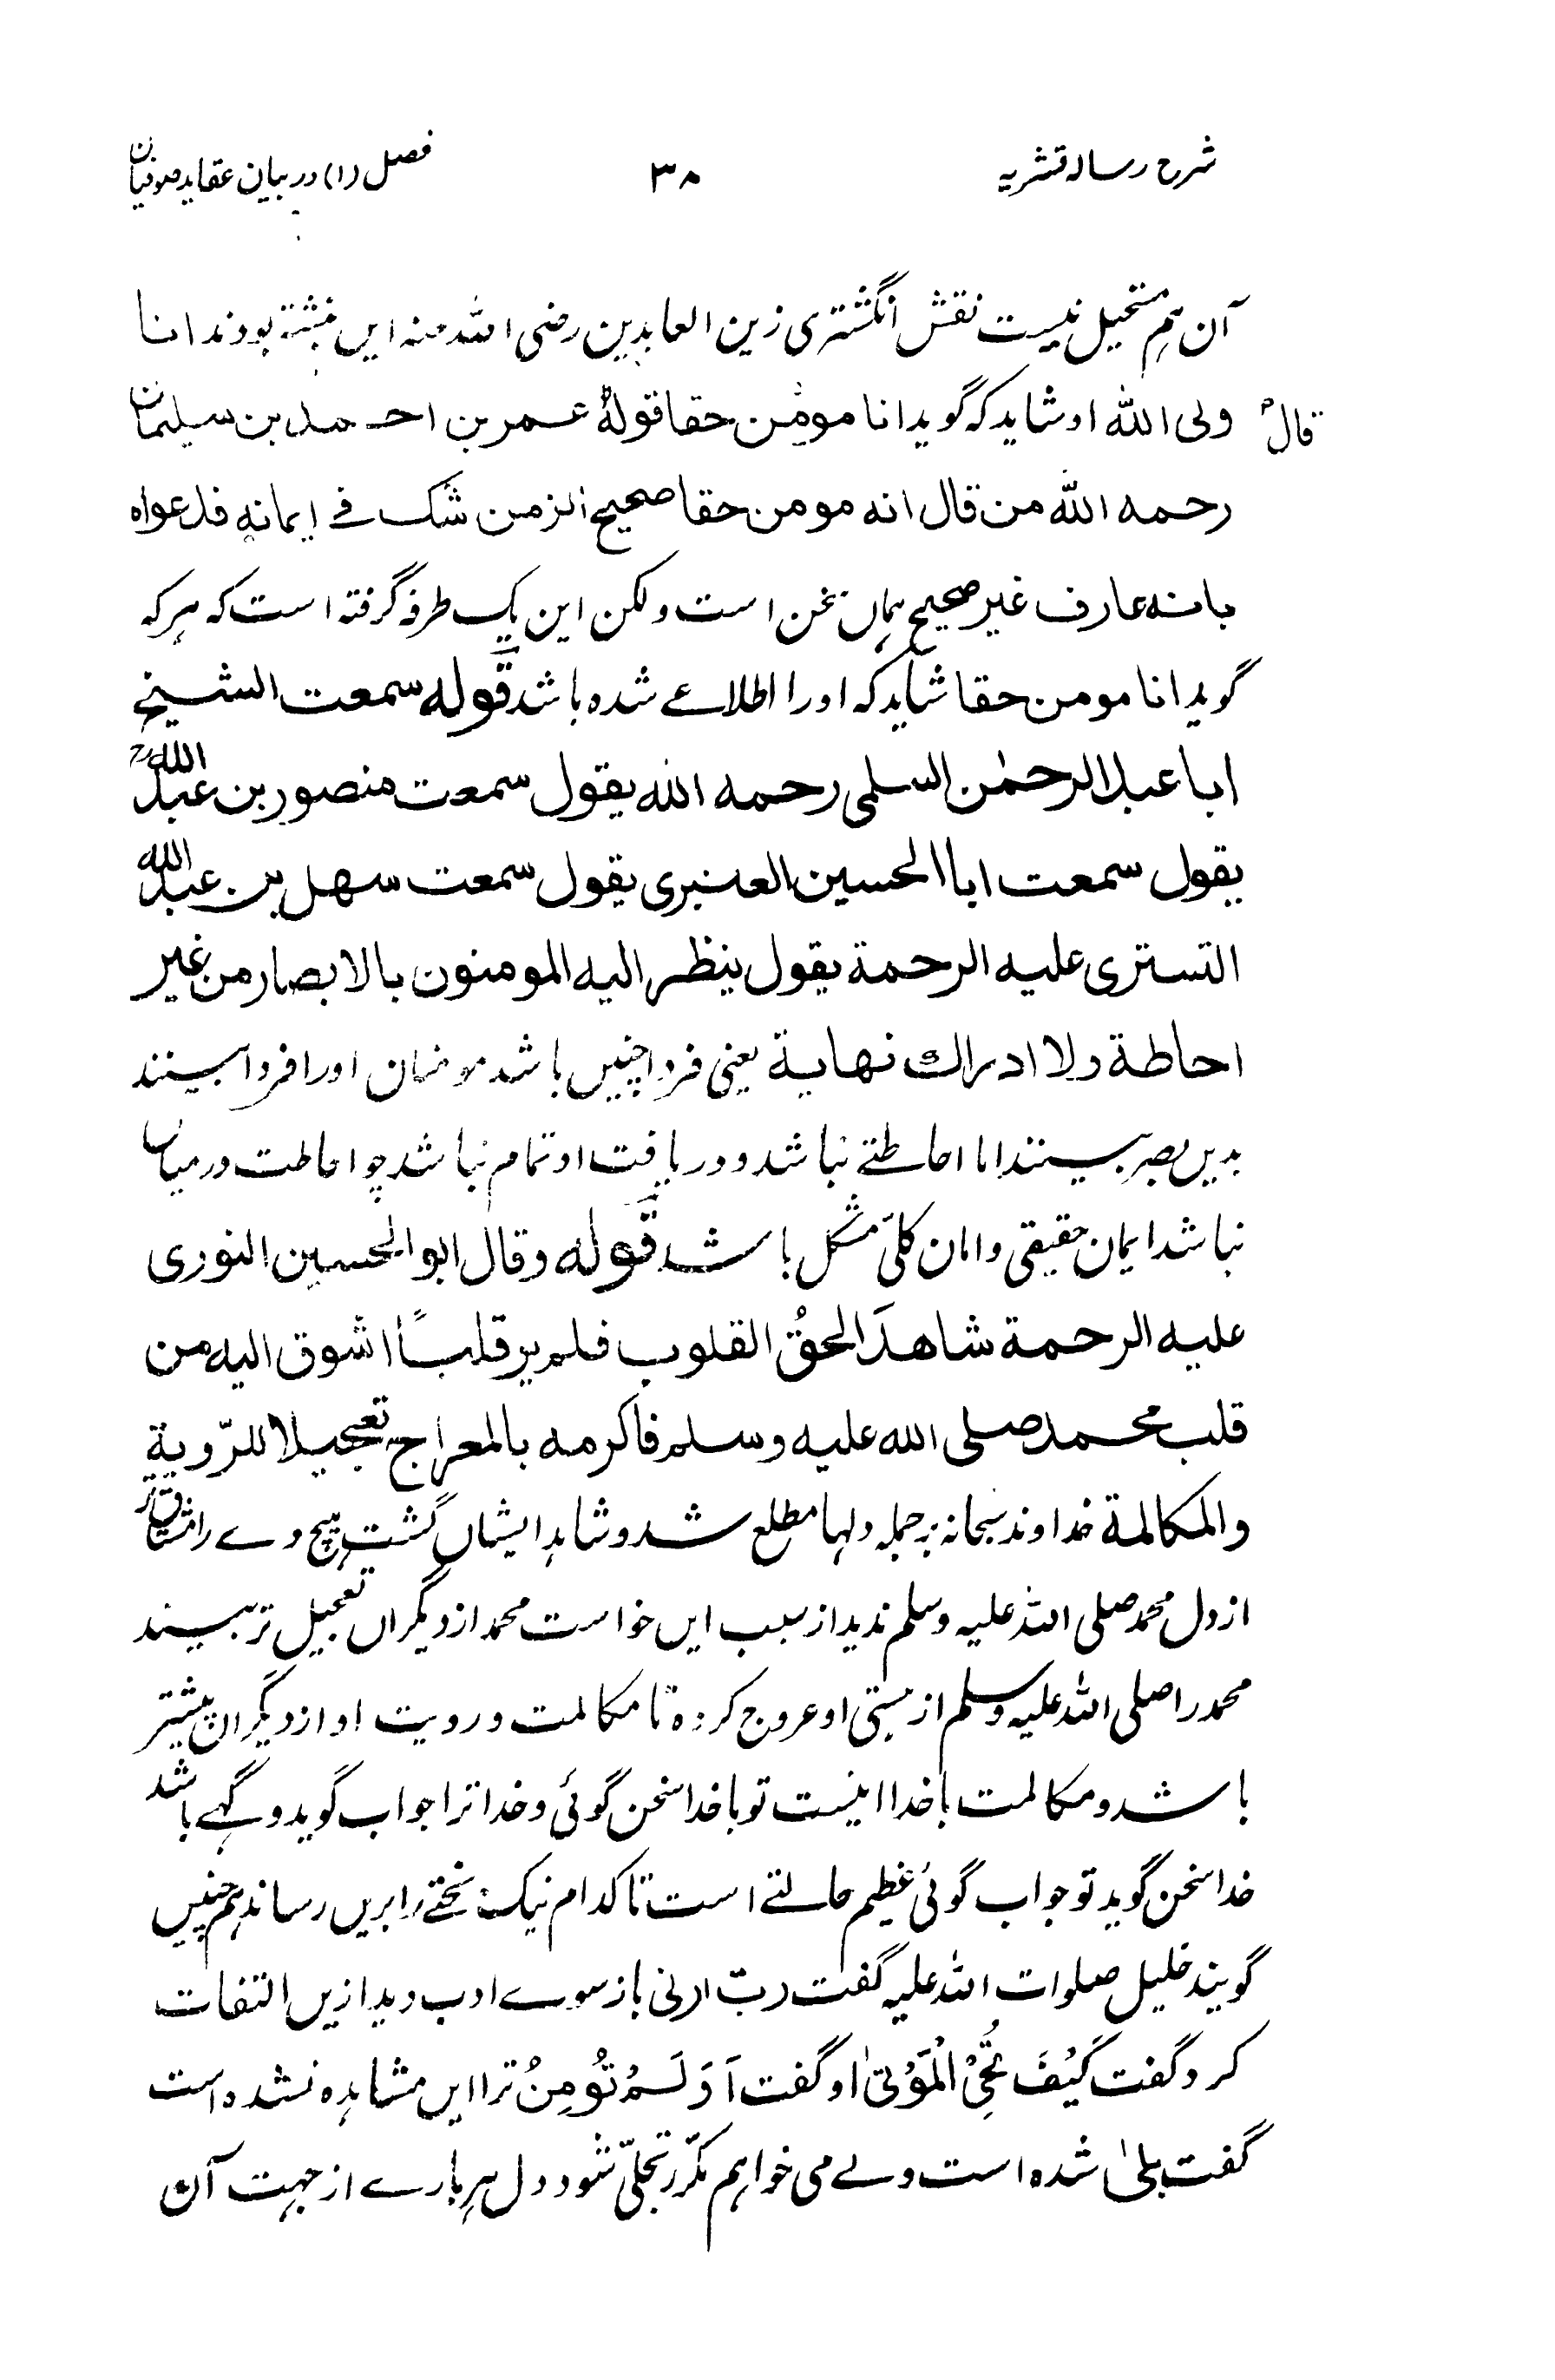 شرح رسالہ قشریہ ۳۸ فصل (۱) در بیان عقاید صوفیان
آن ہم مستحیل نیست نقش انگشتری زین العابدین رضی اللہ عنہ ایں نبشتہ بودند انا
ولی اللہ او شاید کہ گوید انا مومن حقا قولہ عمر بن احمد بن سلیمان
قال
رحمہ اللہ من قال انہ مومن حقا صحیح من شک فی ایمانہ فدعواہ
بانہ عارف غیر صحیح ہماں سخن است ولکن این یک طرف گرفتہ است کہ ہر کہ
گوید انا مومن حقا شاید کہ اورا اطلاعے شدہ باشد قولہ سمعت الشیخ
ابا عبد الرحمٰن السلمی رحمہ اللہ یقول سمعت منصور بن عبد اللہ رح
یقول سمعت ابا الحسین العنبری یقول سمعت سھل بن عبد اللہ
التستری علیہ الرحمة یقول ینظر الیہ المومنون بالابصار من غیر
احاطة ولا ادراك نھایة یعنی فردا چنیں باشد مومنان اورا فردا ببینند
بدیں بصر ببینند اما احاطتے نباشد و دریافت او تمام نباشد چو احاطت درمیاں
نباشد ایمان حقیقی و امان کلّی مشکل باشد قولہ وقال ابو الحسین النوری
علیہ الرحمة شاھدَ الحقُ القلوب فلم یر قلبًا اشوق الیہ من
قلب محمد صلی اللہ علیہ وسلم فاکرمہ بالمعراج تعجیلا للرّویة
والمکالمة خداوند سبحانہ بر جملہ دلہا مطلع شد و شاہد ایشاں گشت ہیچ دلے را مشتاق تر
از دل محمد صلی اللہ علیہ وسلم ندید از سبب ایں خواست محمد از دیگراں تعجیل تر ببیند
محمد را صلی اللہ علیہ وسلم از ہستی او عروج کردہ تا مکالمت و رویت او از دیگران پیشتر
باشد و مکالمت با خدا اینست تو با خدا سخن گوئی و خدا ترا جواب گوید و گہے باشد
خدا سخن گوید تو جواب گوئی عظیم حالتے است تا کدام نیک بختے را بریں رساند ہم چنیں
گویند خلیل صلوات اللہ علیہ گفت ربّ ارنی باز سوے ادب دید ازیں التفات
کرد گفت کَیْفَ تُحْیِ الْمَوْتیٰ او گفت اَوَلَمْ تُومِنُ ترا ایں مشاہدہ نشدہ است
گفت بلیٰ شدہ است ولے می خواہم مکرّر تجلّی شود دل ہر بارے از جہت آن